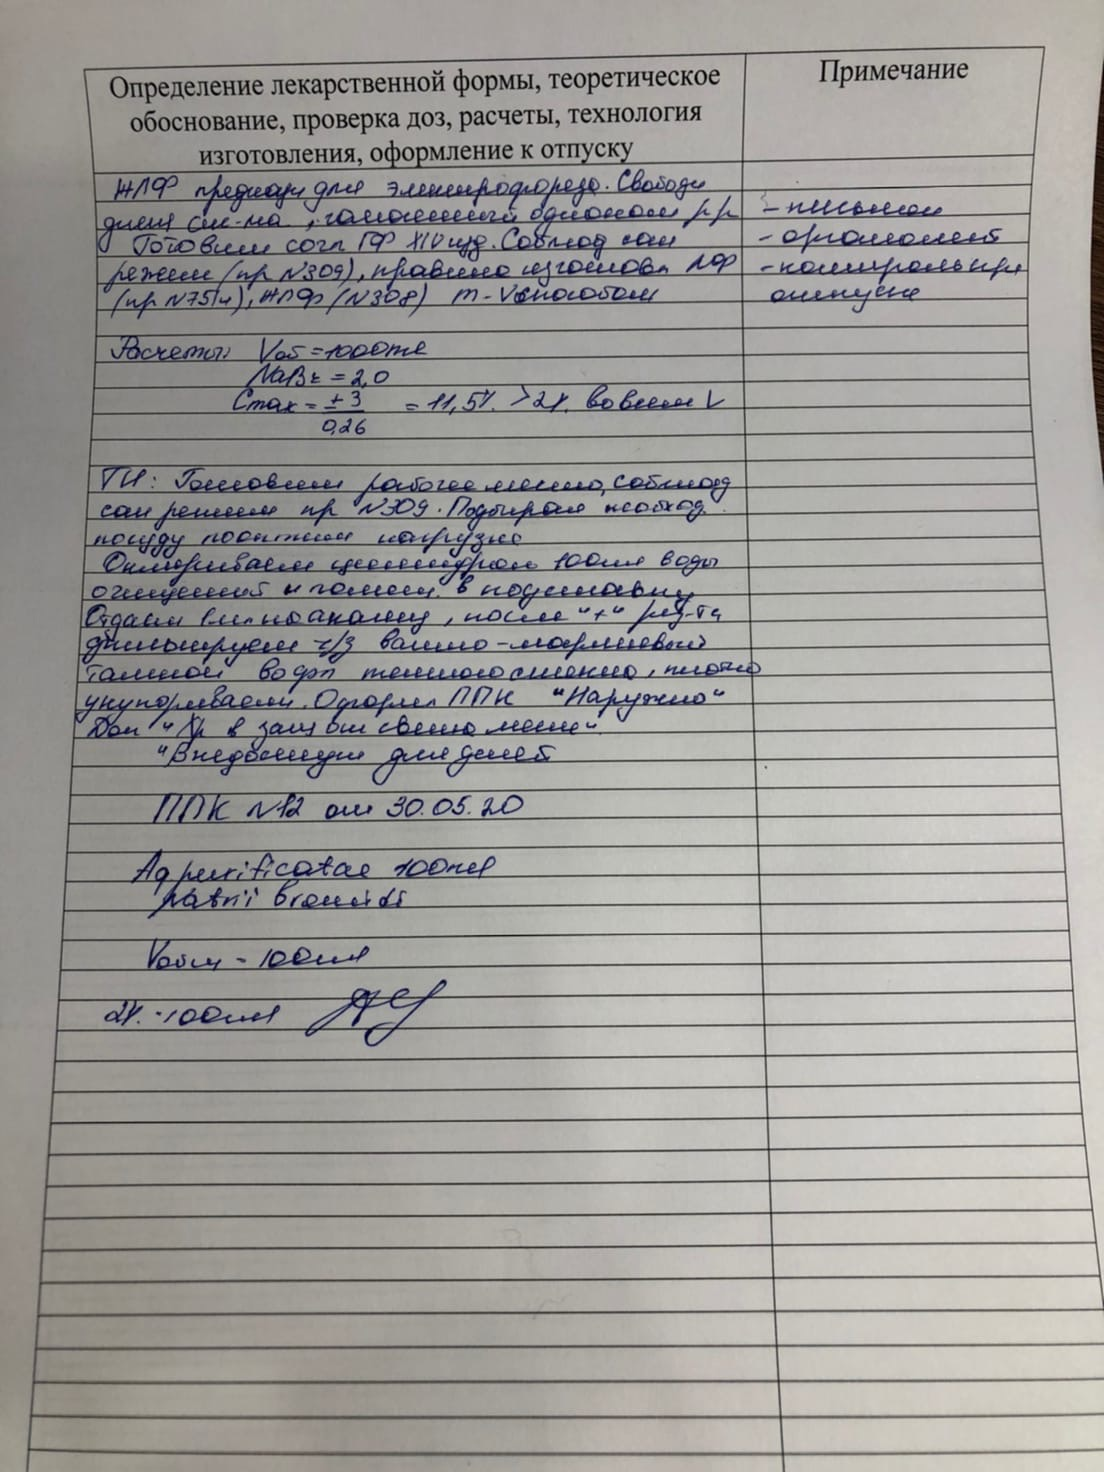 Определение лекарственной формы, теоретическое
обоснование, проверка доз, расчеты, технология
изготовления, оформление к отпуску
Примечание
ЖЛФ предназн для электрофореза. Свободн
дисп сис-ма, гомогенный р-р
Готовим согл ГФ XIV изд. Соблюд сан
режим (пр №309), правила изготовл ЛФ
(пр №751н), ЖЛФ (№308) m-V способом
- письмен
- органолепт
- контроль при
отпуске
Расчеты: Vоб = 1000мл
NaBr = 2,0
Cmax = ± 3 = 11,5%. > 2%. во всем V
0,26
ТИ: Готовим рабочее место, соблюд
сан режим пр №309. Подбираем необход.
посуду
Отмериваем цилиндром 100мл воды
очищенной и помещ. в подставку
Отдаем на анализ, после "+" рез-та
фильтруем ч/з ватно-марлевый
тампон во фл темного стекла, плотно
укупориваем. Оформл ППК "Наружно"
Доп "Хр в защ от света месте".
"В недоступн для детей
ППК №12 от 30.05.20
Aq purificatae 100ml
Natrii bromidi
Vобщ - 100мл
2%. - 100мл